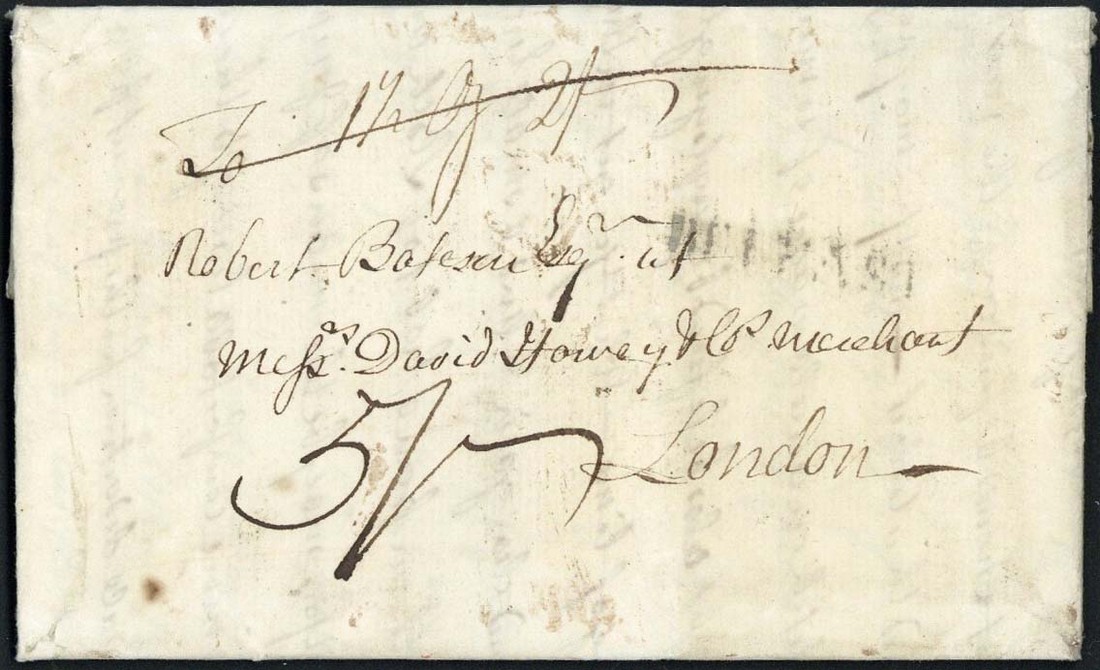 To 1½ oz 2/
Robert Bateson Esqr. at
Messrs. David Howey & Co Merchant
5/
London